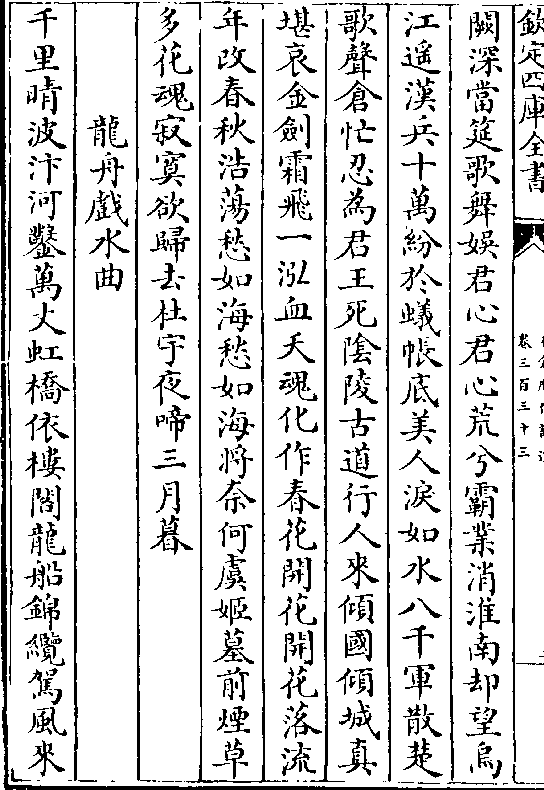 欽定四庫全書
卷三百三十三
闕深當筵歌舞娛君心君心荒兮霸業消淮南却望烏
江遥漢兵十萬紛於蟻帳底美人淚如水八千軍散楚
歌聲倉忙忍為君王死陰陵古道行人來傾國傾城真
堪哀金劍霜飛一泓血夭魂化作春花開花開花落流
年改春秋浩蕩愁如海愁如海將奈何虞姬墓前煙草
多花魂寂寞欲歸去杜宇夜啼三月暮
龍舟戲水曲
千里晴波汴河鑿萬丈虹橋依樓閣龍船錦纜駕風來